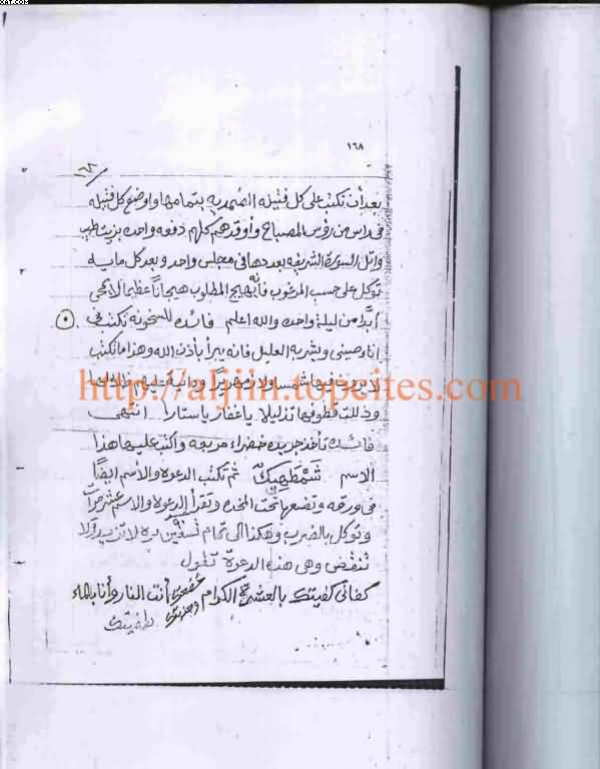 ١٦٨
١٦٨
بعد أن تكتب على كل فتيله الصمديه بتمامها واوضع كل فتيله
في راس من رؤس المصباح وأوقدهم كلهم دفعه واحده بزيت طيب
واتل السورة الشريفه بعددها في مجلس واحد وبعد كل مايه
توكل على حسب المرغوب فأنه يهيج المطلوب هيجاناً عظيما لا
أبداً من ليلة واحده والله اعلم فائده للسخونه تكتب في
اناء صيني ويشربه العليل فانه يبرأ بأذن الله وهذا ما تكتب
لا يرون فيها شمسا ولا زمهريراً ودانية عليهم ظلالها
وذللت قطوفها تذليلا ياغفار ياستارا انتهى
http://aljiin.topcites.com
فائده تأخذ جريده خضراء مربعه واكتب عليها هذا
الاسم ثم تكتب الدعوة والأسم ايضًا
في ورقه وتضعها تحت المخده وتقرأ الدعوة والاسم عشر مرات
وتوكل بالضرب وهكذا الى تمام تسعين مره لا تزيد ولا
٩٠
تنقض وهي هذه الدعوة تقول
كفاني كفيتك بالعشرة الكرام أنت النار وأنا بالماء
طفيتك